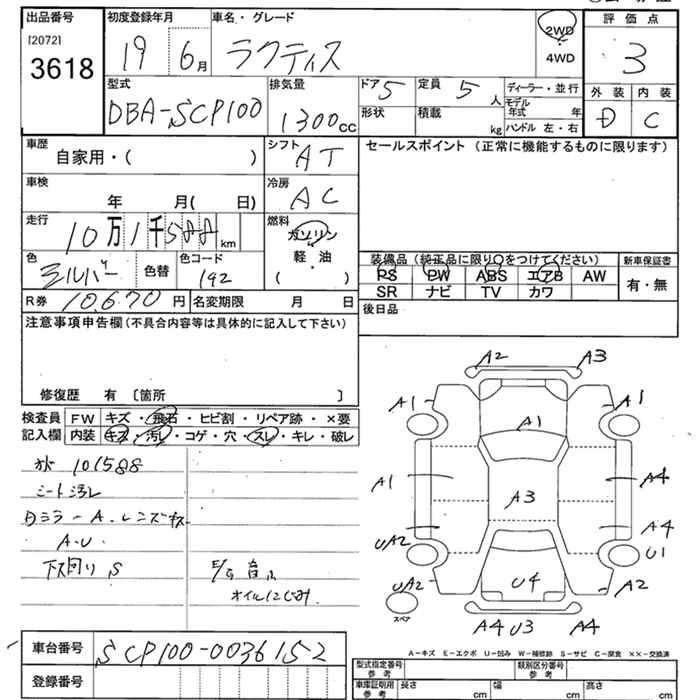 出品番号 初度登録年月 車名・グレード 2WD 4WD 評価点
[2072]
3618 19 6月 ラクティス 3
型式 排気量 ドア 5 定員 5人 ディーラー・並行 外装 内装
DBA-SCP100 1300cc 形状 積載 kg モデル年式 年 D C
ハンドル 左・右
車歴 自家用・( ) シフト AT セールスポイント (正常に機能するものに限ります)
車検 年 月( 日) 冷房 AC
走行 10万1千588km 燃料 ガソリン
軽・油
( ・ )
色 シルバー 色替 色コード 192 装備品 (純正品に限り○をつけてください) 新車保証書
PS PW ABS エアB AW 有・無
R券 10,670円 名変期限 月 日 SR ナビ TV カワ
注意事項申告欄 (不具合内容等は具体的に記入して下さい) 後日品
修復歴 有 〔箇所 〕
検査員 FW キズ・飛石・ヒビ割・リペア跡・×要
記入欄 内装 キズ・汚レ・コゲ・穴・スレ・キレ・破レ
101588
シート汚レ
A.U
下廻り S
オイルにじみ
A2 A3
A1 A1 A1
A1 A3 A4
A4
UA2 U1
UA2 U4 A2
スペア
A4 U3 A4
A-キズ E-エクボ U-凹み W-補修跡 S-サビ C-腐食 ××-交換済
車台番号 SCP100-0036152
登録番号
型式指定番号 参考 類別区分番号 参考
車庫証明用 参考 長さ cm 幅 cm 高さ cm